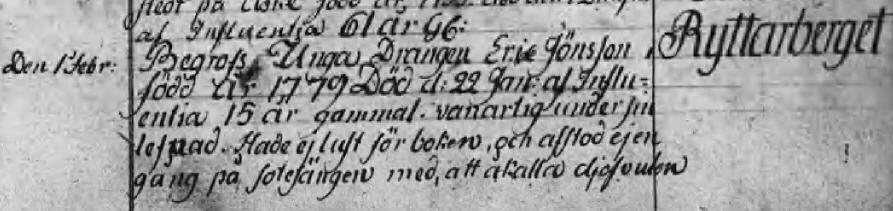 af Influentia 61 år G6:
Den 1 Febr: Begrofs Unga Drängen Eric Jönsson i Ryttarberget
född år 1779 Död d: 22 Jan: af Influ=
entia 15 år gammal. vanartig under sin
lefnad. Hade ej lust för boken, och afstod ej en
gång på sotesängen med, att åkalla djefvulen